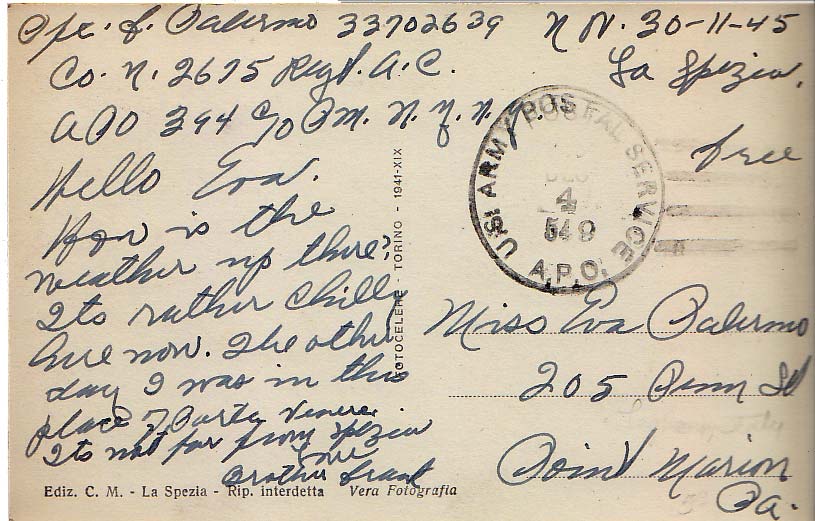 Opr. f. Palermo 33702639 N N. 30-11-45
Co. N. 2675 Regt. A.C. La Spezia,
APO 394 c/o P.M. N.Y. N.Y. free
Hello Eva.
How is the
weather up there?
Its rather chilly
here now. The other
day I was in this
place of Porto Venere.
Its not far from Spezia
Love
Brother Frank
U.S. ARMY POSTAL SERVICE
DEC
4
A.P.O.
Miss Eva Palermo
205 Penn St
Point Marion
Pa.
FOTOCELERE - TORINO - 1941-XIX
Ediz. C. M. - La Spezia - Rip. interdetta Vera Fotografia